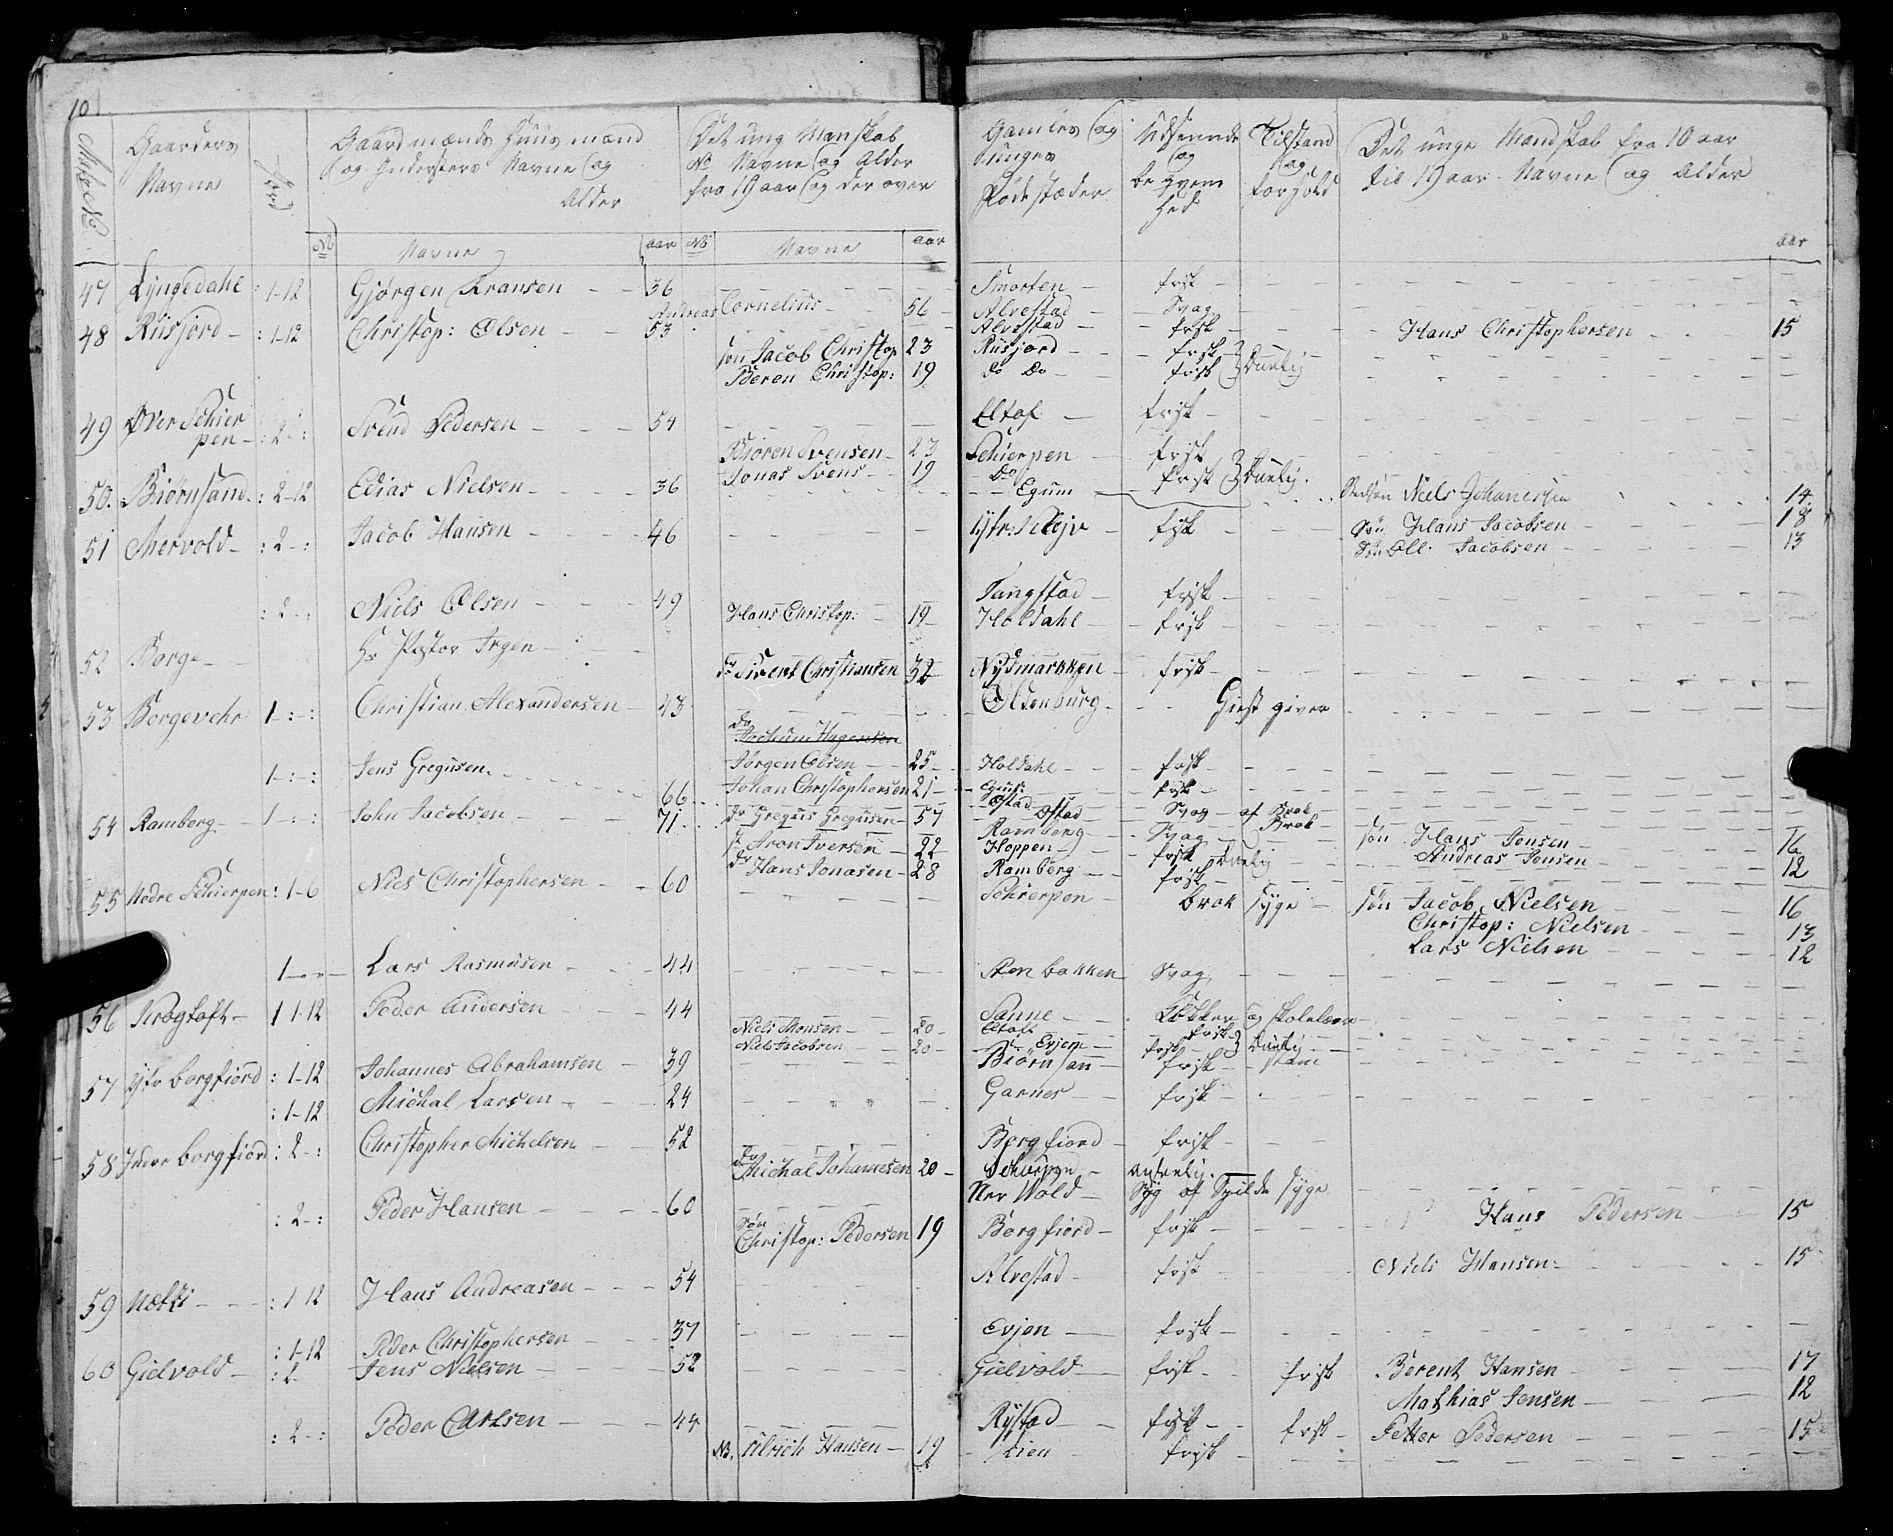 10
Matr: No | Gaardens Navne | Jord | Gaardmænds Huus mænd og Indersters Navne og Alder | Det ung Manskab No Navne og Alder fra 19 aar og der over | Gamles og unges Fødestæder | Udseende og be qvem hed | Tilstand og forhold | Det unge Mandskab fra 10 aar til 19 aar Navne og Alder
No | Navne | aar | No | Navne | aar | aar
47 Lyngedahl : 1-12 Gjørgen Fransen 36 Smorten frisk
Andreas Cornelius 56 Alvestad Svag
48 Riisjord : 1-12 Christop: Olsen 53 Alvestad frisk Hans Christophersen 15
søn Jacob Christop 23 Riisjord frisk
Beren Christop: 19 do Do frisk Duelig
49 Over Schierpen : 2 - : Svend Pedersen 54 Eltof frisk
Bioren Svensen 23 Schierpen frisk
Jonas Svens 19 Do frisk Duelig
50. Biørnsand : 2-12 Elias Nielsen 36 Egum Stedsøn Niels Johannesen 14
51 Mervold : 2 - : Jacob Hansen 46 frisk Søn Hans Jacobsen 18
Søn Oll. Jacobsen 13
: 2 - : Niels Olsen 49 Tangstad frisk
Hans Christop: 19 Holdahl frisk
52 Borge Hr Pastor Irgen
Dr Sivert Christiansen 32 Nydmarkken frisk
53 Borgevehr 1 - : - : Christian Alexandersen 43 Oldenburg Giest giver
Do Jochum Hagensen
Jørgen Olsen 25 Holdahl frisk
1 - : - : Jens Gregusen 66 Johan Christophersen 21 Egum frisk
54 Ramberg 1 - : John Jacobsen 71 Dr Gregus Gregusen 57 Ostad Svag af Brok
Ramberg Svag Brok søn Hans Jonsen 16
Aron Iversen 22 Hoppen frisk Duelig Andreas Jonsen 12
Dr Hans Jonasen 28 Ramberg frisk
55 Nedre Schierpen : 1-6 Niels Christophersen 60 Schierpen Brok syge søn Jacob Nielsen 16
Christop: Nielsen 13
Lars Nielsen 12
1 Lars Rasmusen 44 Sten bakken Svag
56 Krogtoft 1 1-12 Peder Andersen 44 Sanne Klokker og skolelærer
Niels Monsen 20 Eltoft frisk
Niels Jacobsen 20 Evjen frisk Duelig
57 Ytr borgfiord : 1-12 Johannes Abrahamsen 39 Biørnsan frisk
: 1-12 Michal Larsen 24 Garnes frisk
58 Indre borgfiord : 2 - : Christopher Michelsen 52 Borgfiord frisk
Michal Johannesen 20 Schierpen
: 2 - : Peder Hansen 60 Ner Wold Syg af Spilde syge
Søn Christop: Pedersen 19 Borgfiord frisk Hans Pedersen 15
59 : 1-12 Hans Andreasen 54 Alvestad frisk Niels Hansen 15
: 1-12 Peder Christophersen 37 Evjen frisk
60 Gielvold : 2 Jens Nielsen 52 Gielvold frisk frisk Berent Hansen 17
Mathias Jensen 12
: 2 - : Peder Carlsen 44 Rystad frisk frisk Petter Pedersen 15
No. Ulrich Hansen 19 Lien frisk